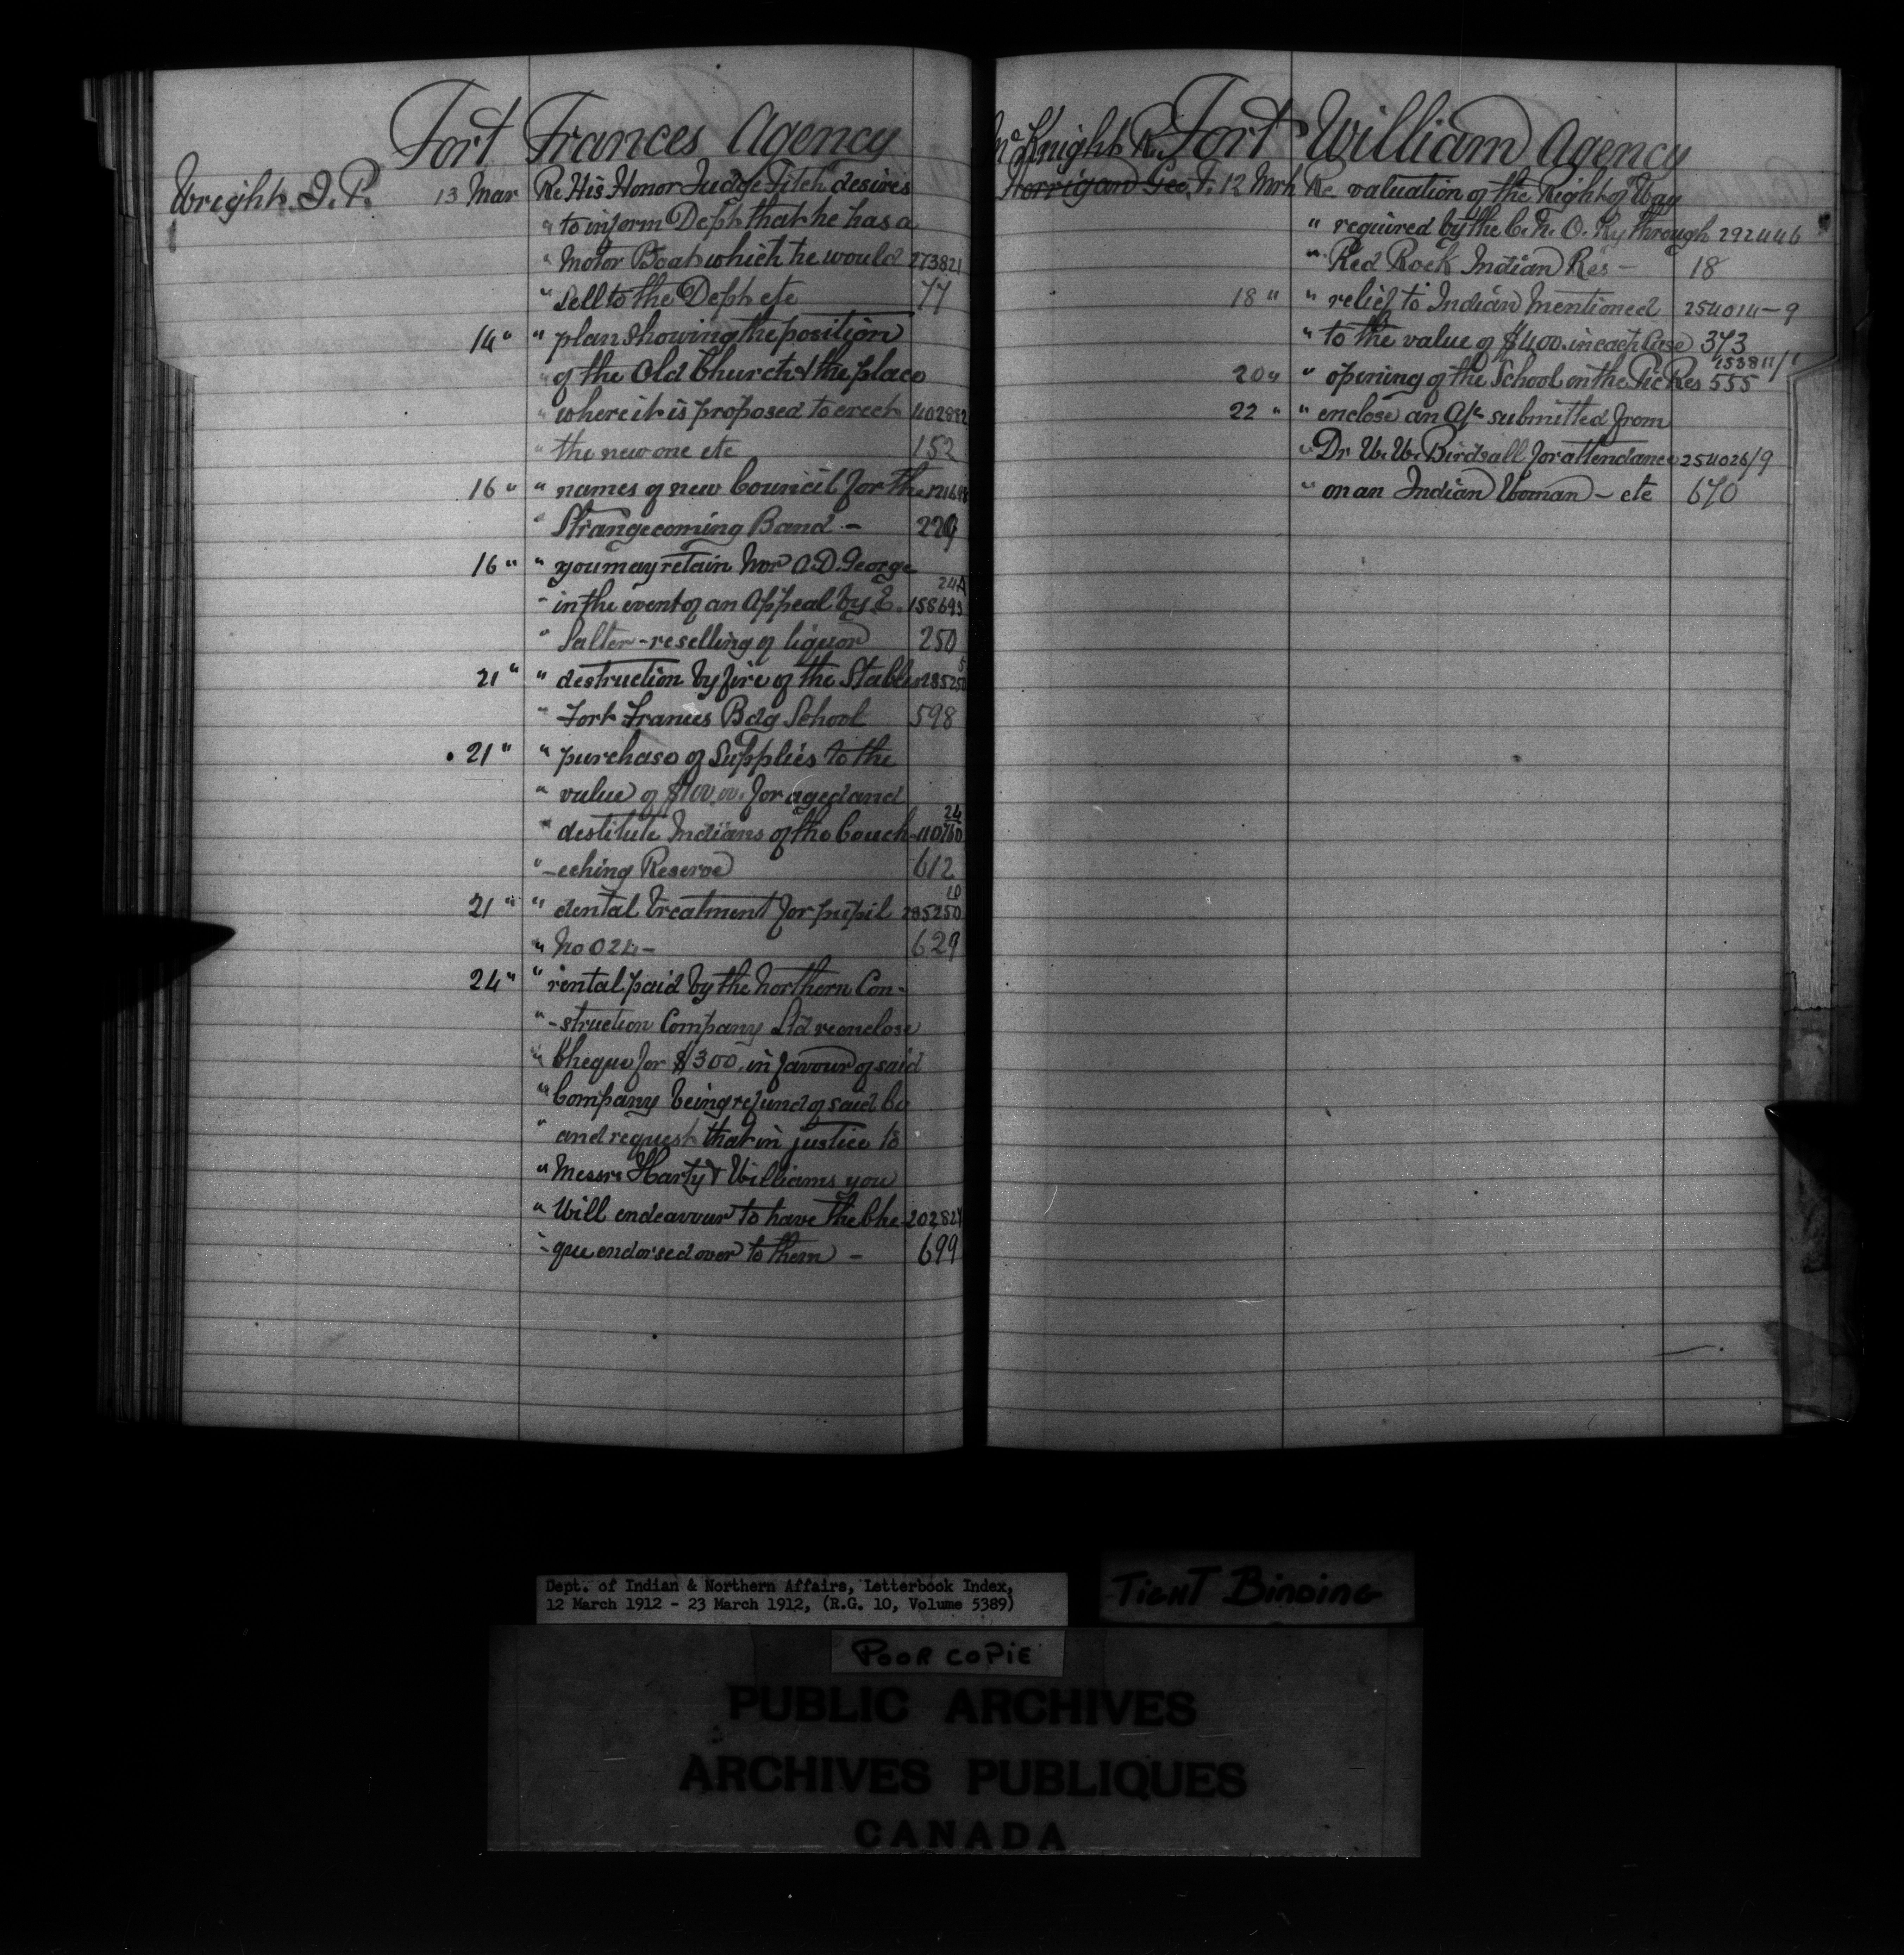 Fort Frances Agency
Wright J. P. 13 Mar Re His Honor Judge Fitch desires
" to inform Dept that he has a
" Motor Boat which he would 273821
" sell to the Dept etc 77
14 " " plan showing the position
" of the Old Church & the place
" where it is proposed to erect 402882
" the new one etc 152
16 " " names of new Council for the
" Strangecoming Band - 229
16 " " you may retain Mr A.D. George
24A
" in the event of an Appeal by E. 158693
" Salter - re selling of liquor 250
21 " " destruction by fire of the Stables
" Fort Frances Bdg School 598
21 " " purchase of supplies to the
" value of $100.00. for aged and
24
" destitute Indians of the Couch-
" -eching Reserve 612
10
21 " " dental treatment for pupil 285250
" No 024 - 629
24 " " rental paid by the Northern Con-
" -struction Company Ltd re enclose
" Cheque for $300. in favour of said
" Company being refund of said Co
" and request that in justice to
" Messrs Harty & Williams you
" Will endeavour to have the Che-
" que endorsed over to them - 699
McKnight R. Fort William Agency
Horrigan Geo. T. 12 Mrh Re valuation of the Right of Way
" required by the C. N. O. Ry through 292446
" Red Rock Indian Res - 18
18 " " relief to Indian Mentioned 254014-9
" to the value of $4.00. in each Case 373
153811/1
20 " " opening of the School on the Pic Res 555
22 " " enclose an A/c submitted from
" Dr W. W. Birdsall for attendance 254026/9
" on an Indian Woman - etc 670
Dept. of Indian & Northern Affairs, Letterbook Index,
12 March 1912 - 23 March 1912, (R.G. 10, Volume 5389)
TIGHT BINDING
POOR COPIE
PUBLIC ARCHIVES
ARCHIVES PUBLIQUES
CANADA